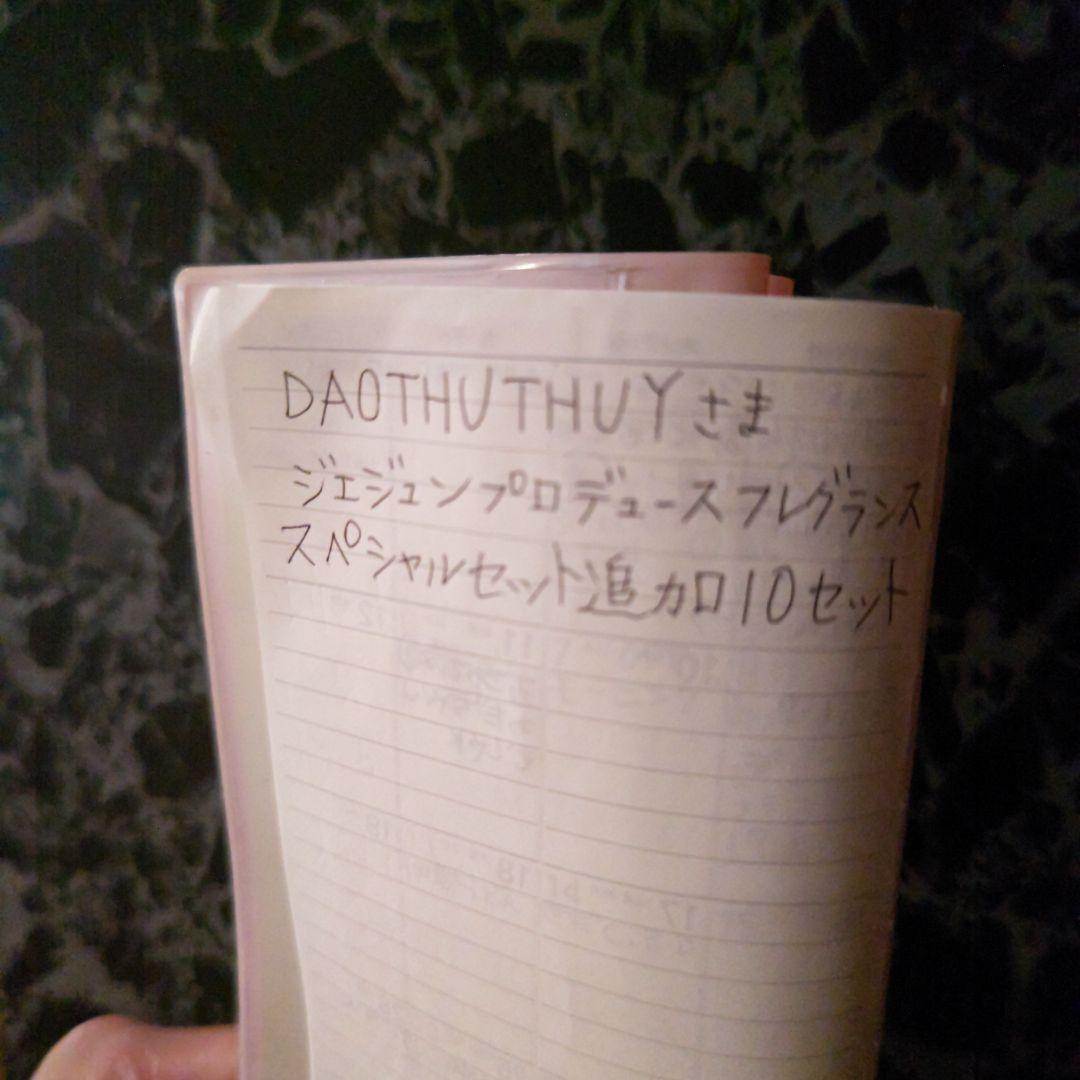 DAOTHUTHUYさま
ジェジュンプロデュースフレグランス
スペシャルセット追加10セット